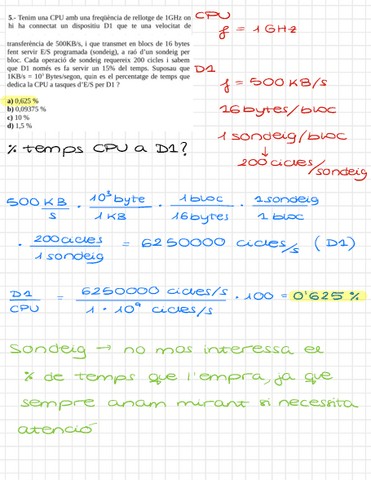 5.- Tenim una CPU amb una freqüència de rellotge de 1GHz on
hi ha connectat un dispositiu D1 que te una velocitat de
transferència de 500KB/s, i que transmet en blocs de 16 bytes
fent servir E/S programada (sondeig), a raó d'un sondeig per
bloc. Cada operació de sondeig requereix 200 cicles i sabem
que D1 només es fa servir un 15% del temps. Suposau que
1KB/s = 10³ Bytes/segon, quin es el percentatge de temps que
dedica la CPU a tasques d'E/S per D1 ?
a) 0,625 %
b) 0,09375 %
c) 10 %
d) 1,5 %
CPU
f = 1GHz
D1
f = 500 KB/s
16 bytes/bloc
1 sondeig/bloc
↓
200 cicles/sondeig
% temps CPU a D1?
500 KB/s · 10³ byte/1 KB · 1 bloc/16 bytes · 1 sondeig/1 bloc
· 200 cicles/1 sondeig = 6250000 cicles/s (D1)
D1/CPU = 6250000 cicles/s / 1·10⁹ cicles/s · 100 = 0'625 %
Sondeig → no mos interessa el
% de temps que l'empra, ja que
sempre anam mirant si necessita
atenció